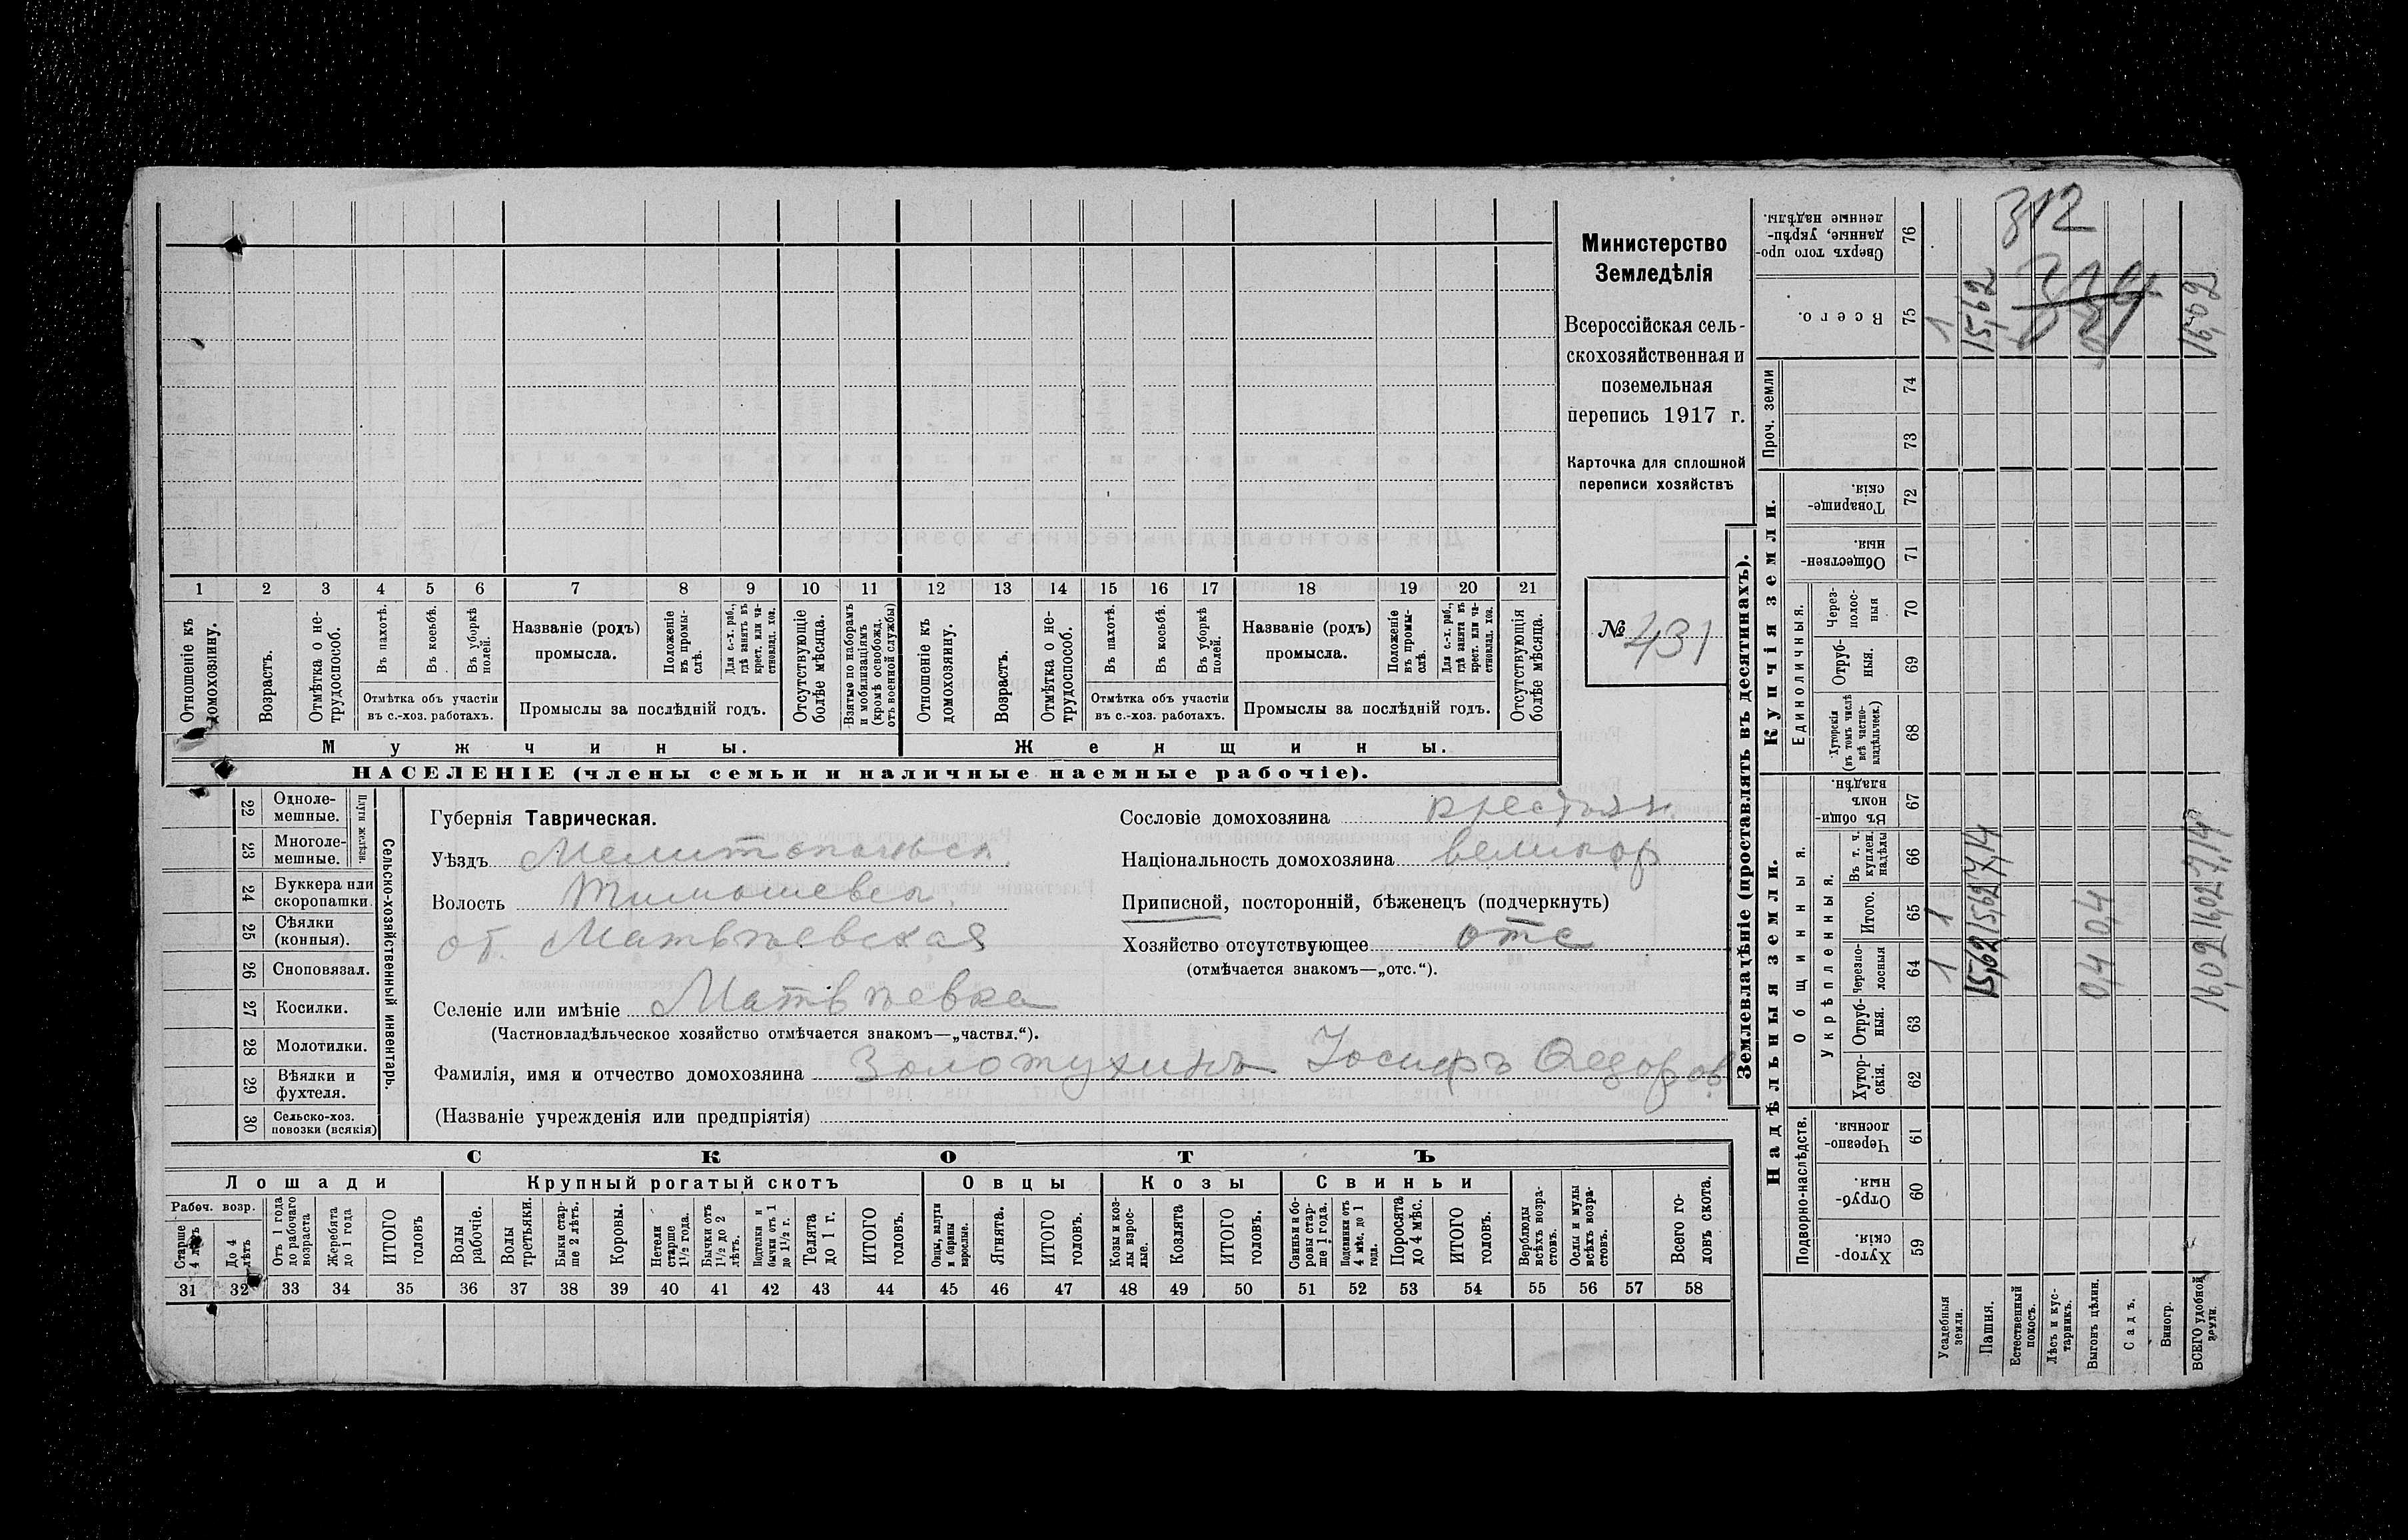 Министерство
Земледѣлія
Всероссійская сель-
скохозяйственная и
поземельная
перепись 1917 г.
Карточка для сплошной
переписи хозяйствъ
№ 431
1 2 3 4 5 6 7 8 9 10 11 12 13 14 15 16 17 18 19 20 21
Отношеніе къ домохозяину.
Возрастъ.
Отмѣтка о не-трудоспособ.
Въ пахотѣ.
Въ косьбѣ.
Въ уборкѣ полей.
Отмѣтка объ участіи
въ с.-хоз. работахъ.
Названіе (родъ)
промысла.
Положеніе въ промы-слѣ.
Для с.-х. раб., гдѣ занятъ въ крест. или ча-стновлад. хоз.
Промыслы за послѣдній годъ.
Отсутствующіе болѣе мѣсяца.
Взятые по наборамъ и мобилизаціямъ (кромѣ освобожд. отъ военной службы)
Отношеніе къ домохозяину.
Возрастъ.
Отмѣтка о не-трудоспособ.
Въ пахотѣ.
Въ косьбѣ.
Въ уборкѣ полей.
Отмѣтка объ участіи
въ с.-хоз. работахъ.
Названіе (родъ)
промысла.
Положеніе въ промы-слѣ.
Для с.-х. раб., гдѣ занята въ крест. или ча-стновлад. хоз.
Промыслы за послѣдній годъ.
Отсутствующія болѣе мѣсяца.
Мужчины.
Женщины.
НАСЕЛЕНІЕ (члены семьи и наличные наемные рабочіе).
22 Одноле-мешные.
23 Многоле-мешные.
Плуги желѣзн.
24 Буккера или скоропашки.
25 Сѣялки (конныя).
26 Сноповязал.
27 Косилки.
28 Молотилки.
29 Вѣялки и фухтеля.
30 Сельско-хоз. повозки (всякія)
Сельско-хозяйственный инвентарь.
Губернія Таврическая.
Уѣздъ Мелитопольск.
Волость Тимошевск.
об. Матвѣевская
Селеніе или имѣніе Матвѣевка
(Частновладѣльческое хозяйство отмѣчается знакомъ—„частвл.“).
Фамилія, имя и отчество домохозяина Золотухинъ Іосифъ Ѳедоров.
(Названіе учрежденія или предпріятія)
Сословіе домохозяина крестьян.
Національность домохозяина великор
Приписной, посторонній, бѣженецъ (подчеркнуть)
Хозяйство отсутствующее отс
(отмѣчается знакомъ—„отс.“).
СКОТЪ
Лошади
Крупный рогатый скотъ
Овцы
Козы
Свиньи
Рабоч. возр.
Старше 4 лѣтъ
До 4 лѣтъ
Отъ 1 года до рабочаго возраста
Жеребята до 1 года
ИТОГО головъ
Волы рабочіе.
Волы третьяки.
Быки стар-ше 2 лѣтъ.
Коровы.
Нетели старше 1½ года.
Бычки отъ 1½ до 2 лѣтъ.
Подтелки и бычки отъ 1 до 1½ г.
Телята до 1 г.
ИТОГО головъ.
Овцы, валухи и бараны взрослые.
Ягнята.
ИТОГО головъ.
Козы и коз-лы взрос-лые.
Козлята
ИТОГО головъ.
Свиньи и бо-ровы стар-ше 1 года.
Подсвинки отъ 4 мѣс. до 1 года.
Поросята до 4 мѣс.
ИТОГО головъ.
Верблюды всѣхъ возра-стовъ.
Ослы и мулы всѣхъ возра-стовъ.
Всего го-ловъ скота.
31 32 33 34 35 36 37 38 39 40 41 42 43 44 45 46 47 48 49 50 51 52 53 54 55 56 57 58
Землевладѣніе (проставлять въ десятинахъ).
Надѣльныя земли.
Купчія земли.
Проч. земли
Подворно-наслѣдств.
Общинныя.
Укрѣпленныя.
Единоличныя.
Хутор-скія. 59
Отруб-ныя. 60
Черезпо-лосныя. 61
Хутор-скія. 62
Отруб-ныя. 63
Черезпо-лосныя 64
Итого. 65
Въ т. ч. куплен. надѣлы 66
Въ общи-номъ владѣн. 67
Хуторскія (въ томъ числѣ всѣ частно-владѣльческ.) 68
Отруб-ныя. 69
Через-полос-ныя 70
Обществен-ныя. 71
Товарище-скія. 72
73
74
Всего. 75
Сверхъ того про-данные, укрѣп-ленные надѣлы. 76
Усадебныя земли. 1 1 1
Пашня. 15,62 15,62 7,14 15,62
Естественный покосъ.
Лѣсъ и кус-тарникъ.
Выгонъ цѣлин. 0,4 0,4
Садъ.
Виногр.
ВСЕГО удобной земли. 16,02 16,02 7,14 16,02
312